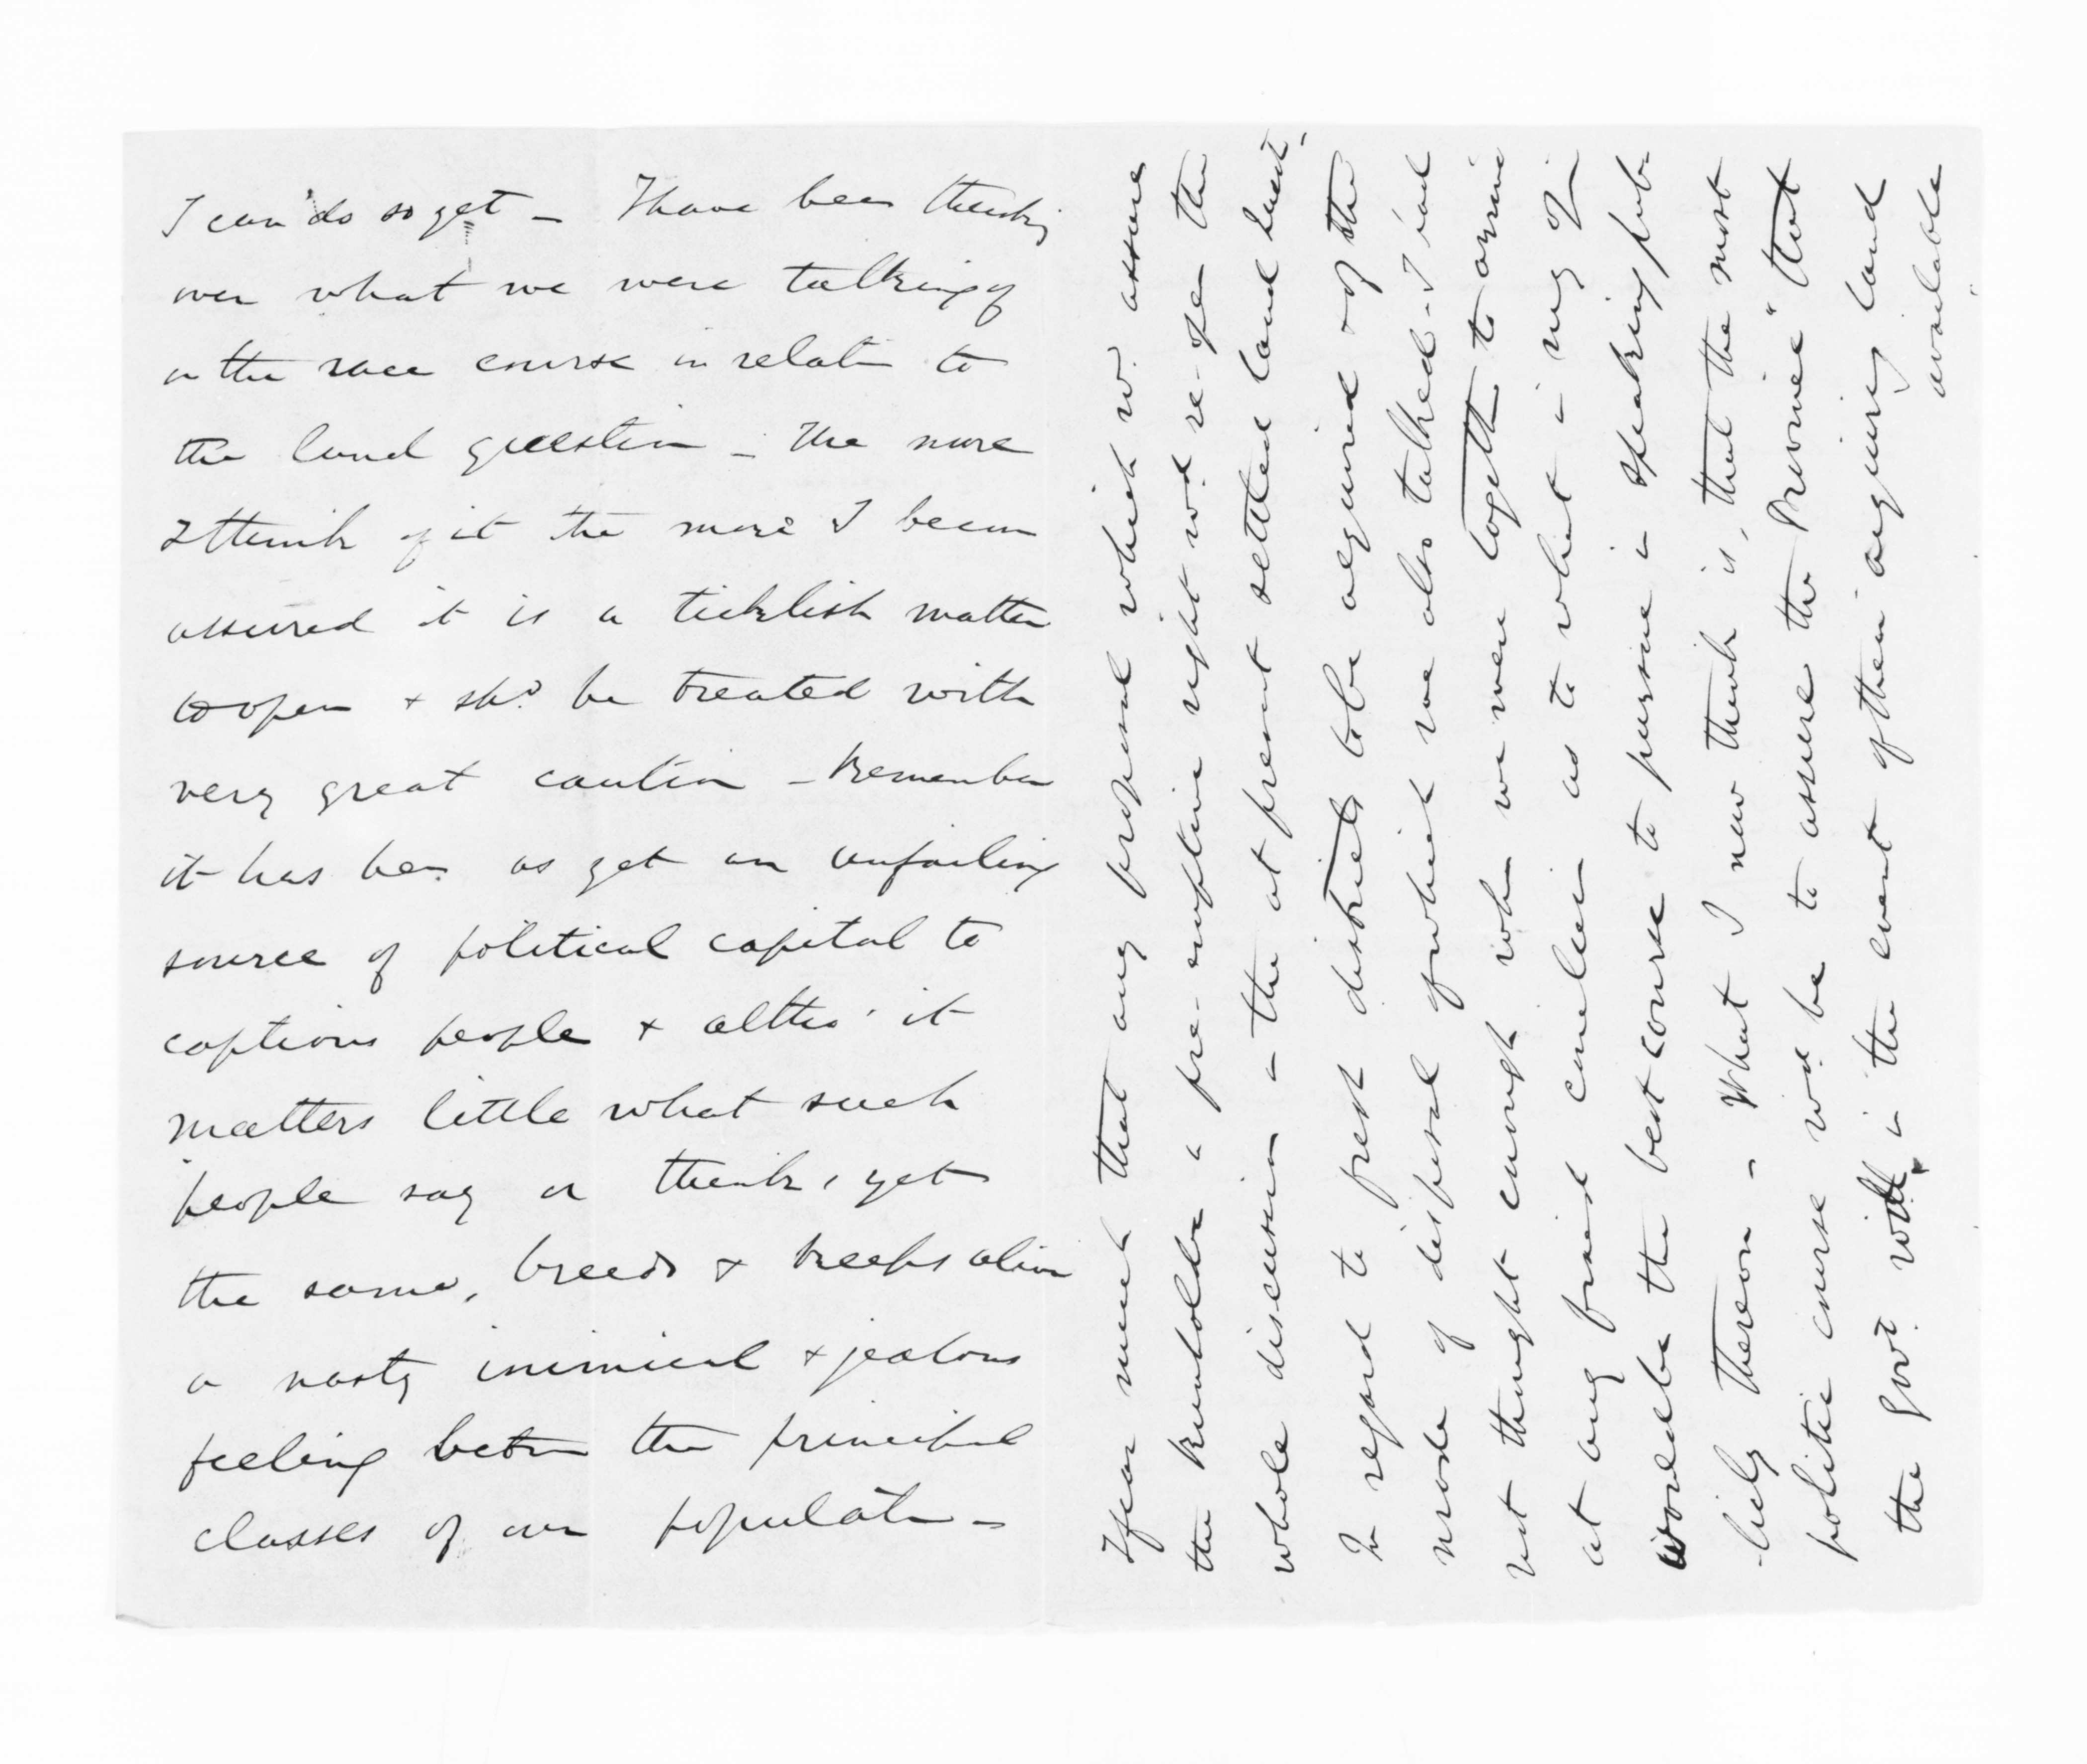 I can do so yet – I have been thinking
over what we were talking of
on the race course in relatn to
the land question – The more
I think of it the more I becom
assured it is a ticklish matter
to open + shd be treated with
very great caution – Remember
it has been as yet an unfailing
source of political capital to
captious people + altho' it
matters little what such
people say or think, yet
the same, breeds + keeps alive
a nasty inimical + jealous
feeling betwn the principal
classes of our populatn –
I fear much that any proposal which wd assure
the Runholder a pre-emptive right wd re-open the
whole discussion in the at present settled land Questn
In regard to fresh districts to be acquired + of the
mode of disposal of which we also talked – I had
not thought enough when we were together to arrive
at any fixed conclusion as to what in my opn
would be the best course to pursue in speaking pub-
-licly thereon – What I now think is, that the most
politic course wd be to assure the Province "that
the Govt will in the event of their acquiring land
available